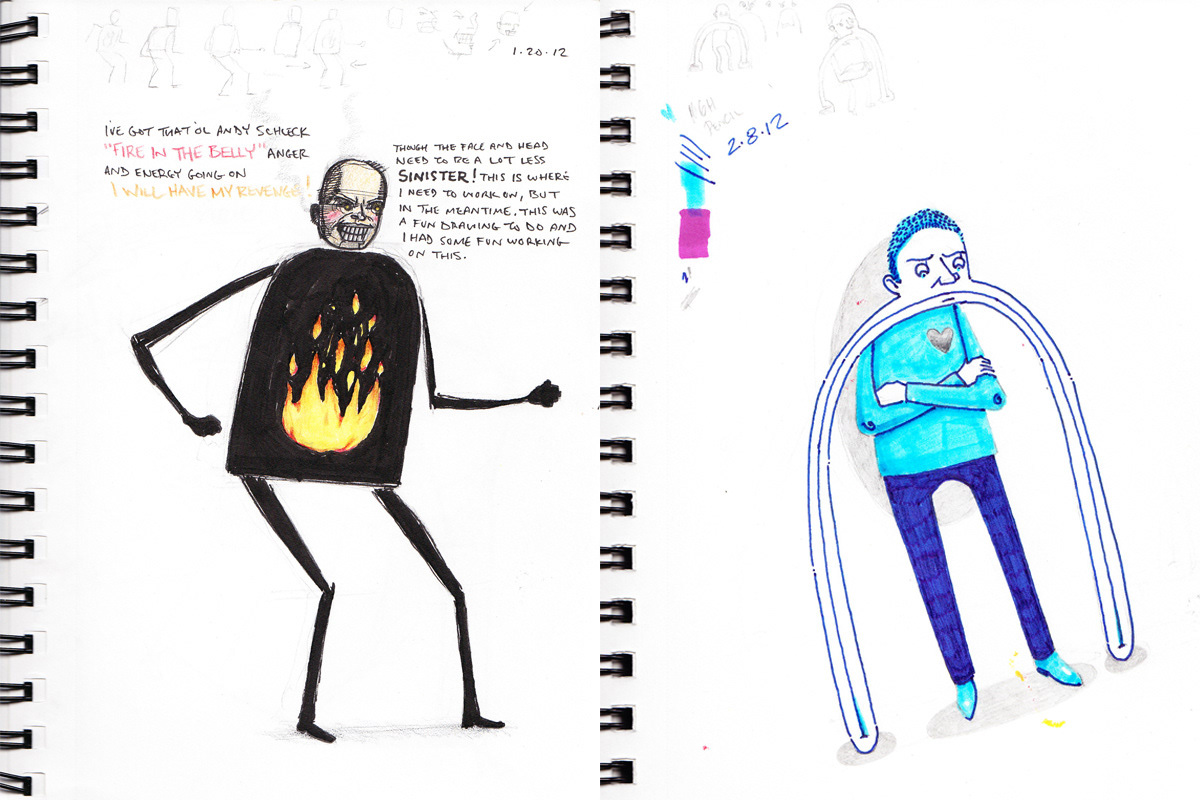 1.20.12
I'VE GOT THAT OL ANDY SCHLECK
"FIRE IN THE BELLY" ANGER
AND ENERGY GOING ON
I WILL HAVE MY REVENGE!
THOUGH THE FACE AND HEAD
NEED TO BE A LOT LESS
SINISTER! THIS IS WHERE
I NEED TO WORK ON, BUT
IN THE MEANTIME. THIS WAS
A FUN DRAWING TO DO AND
I HAD SOME FUN WORKING
ON THIS.
PENCIL
2.8.12